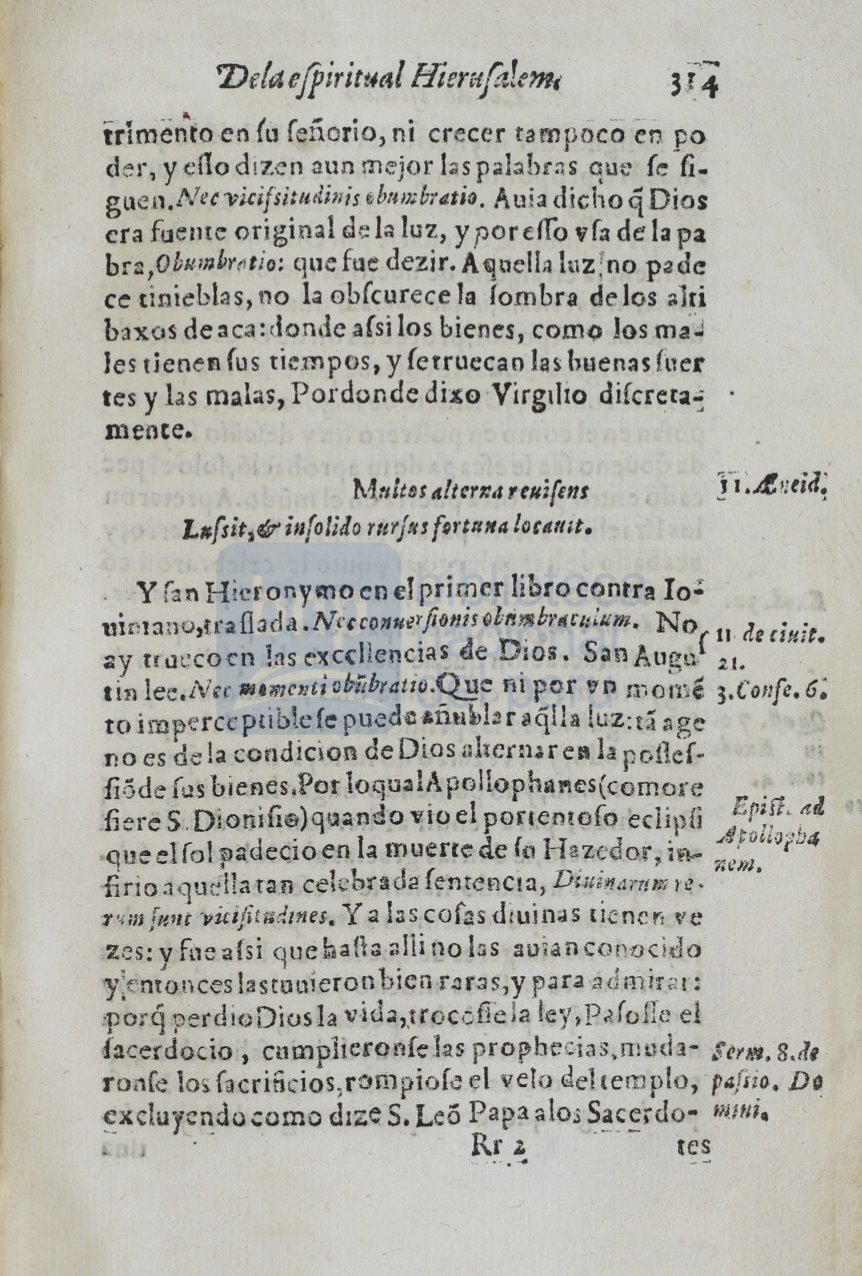 De la espiritual Hierusalem. 314
trimento en su señorio, ni crecer tampoco en po
der, y esto dizen aun mejor las palabras que se si-
guen. Nec vicissitudinis obumbratio. Auia dicho q̃ Dios
era fuente original de la luz, y por esso vsa de la pa
bra, Obumbratio: que fue dezir. Aquella luz no pade
ce tinieblas, no la obscurece la sombra de los alti
baxos de aca: donde assi los bienes, como los ma-
les tienen sus tiempos, y se truecan las buenas suer
tes y las malas, Por donde dixo Virgilio discreta-
mente.
Multos alterna reuisens
11. Æneid.
Lussit, & in solido rursus fortuna locauit.
Y san Hieronymo en el primer libro contra Io-
uiniano, traslada. Nec conuersionis obumbraculum. No
11 de ciuit.
ay trueco en las excellencias de Dios. San Augus
21.
tin lee. Nec momenti obũbratio. Que ni por vn momẽ
3. Confe. 6.
to imperceptible se puede añublar aq̃lla luz: tã age
no es de la condicion de Dios alternar en la posses-
siõ de sus bienes. Por lo qual Apollophanes (como re
fiere S. Dionisio) quando vio el portentoso eclipsi
Epist. ad
que el sol padecio en la muerte de su Hazedor, in-
Apollopha
firio aquella tan celebrada sentencia, Diuinarum re-
nem.
rum sunt vicisitudines. Y a las cosas diuinas tienen ve
zes: y fue assi que hasta alli no las auian conocido
y entonces las tuuieron bien raras, y para admirar:
porq̃ perdio Dios la vida, trocose la ley, Pasosse el
sacerdocio, cumplieronse las prophecias, muda-
Serm. 8. de
ronse los sacrificios, rompiose el velo del templo,
passio. Do
excluyendo como dize S. Leõ Papa a los Sacerdo-
mini.
Rr 2 tes